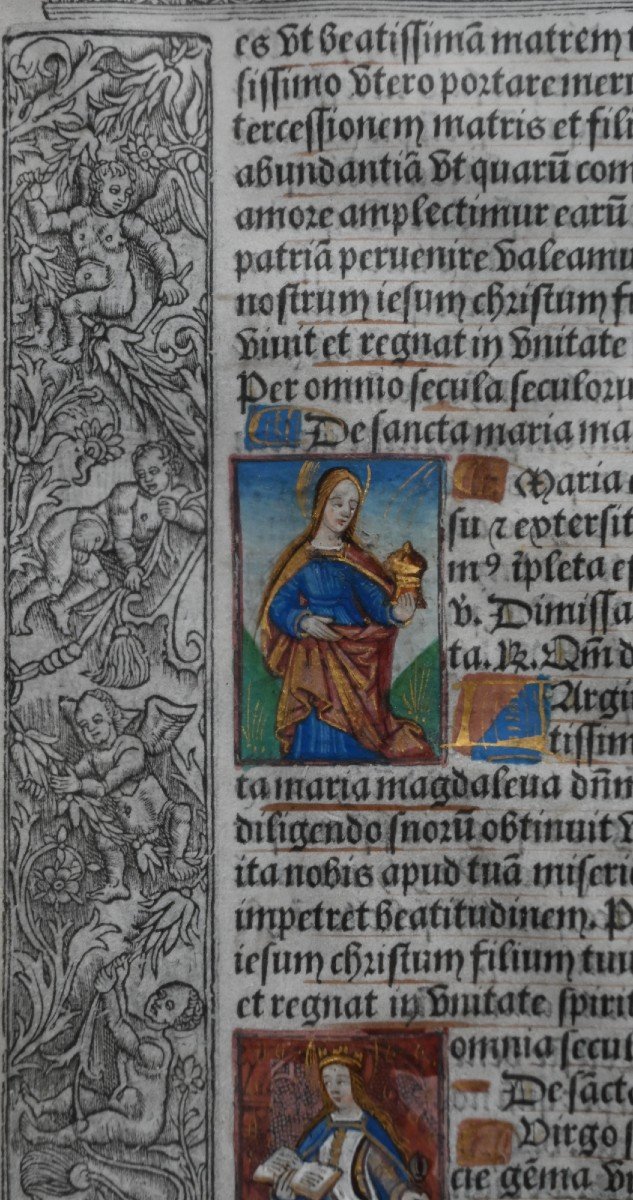 es vt beatissimā matrem
sissimo vtero portare
tercessionem matris et
abundantiā vt quarū
amore amplectimur earū
patriā peruenire
nostrum iesum christum
viuit et regnat in vnitate
Per omnio secula
De sancta maria
Maria
su ⁊ extersit
mꝰ īpleta
v. Dimissa
ta. R. Qm̄
Argi
tissim
ta maria magdaleua dn̄m
diligendo snorū obtinuit
ita nobis apud tuā
impetret beatitudinem.
iesum christum filium
et regnat in vnitate
omnia
De sācto
Virgo
cie gēma